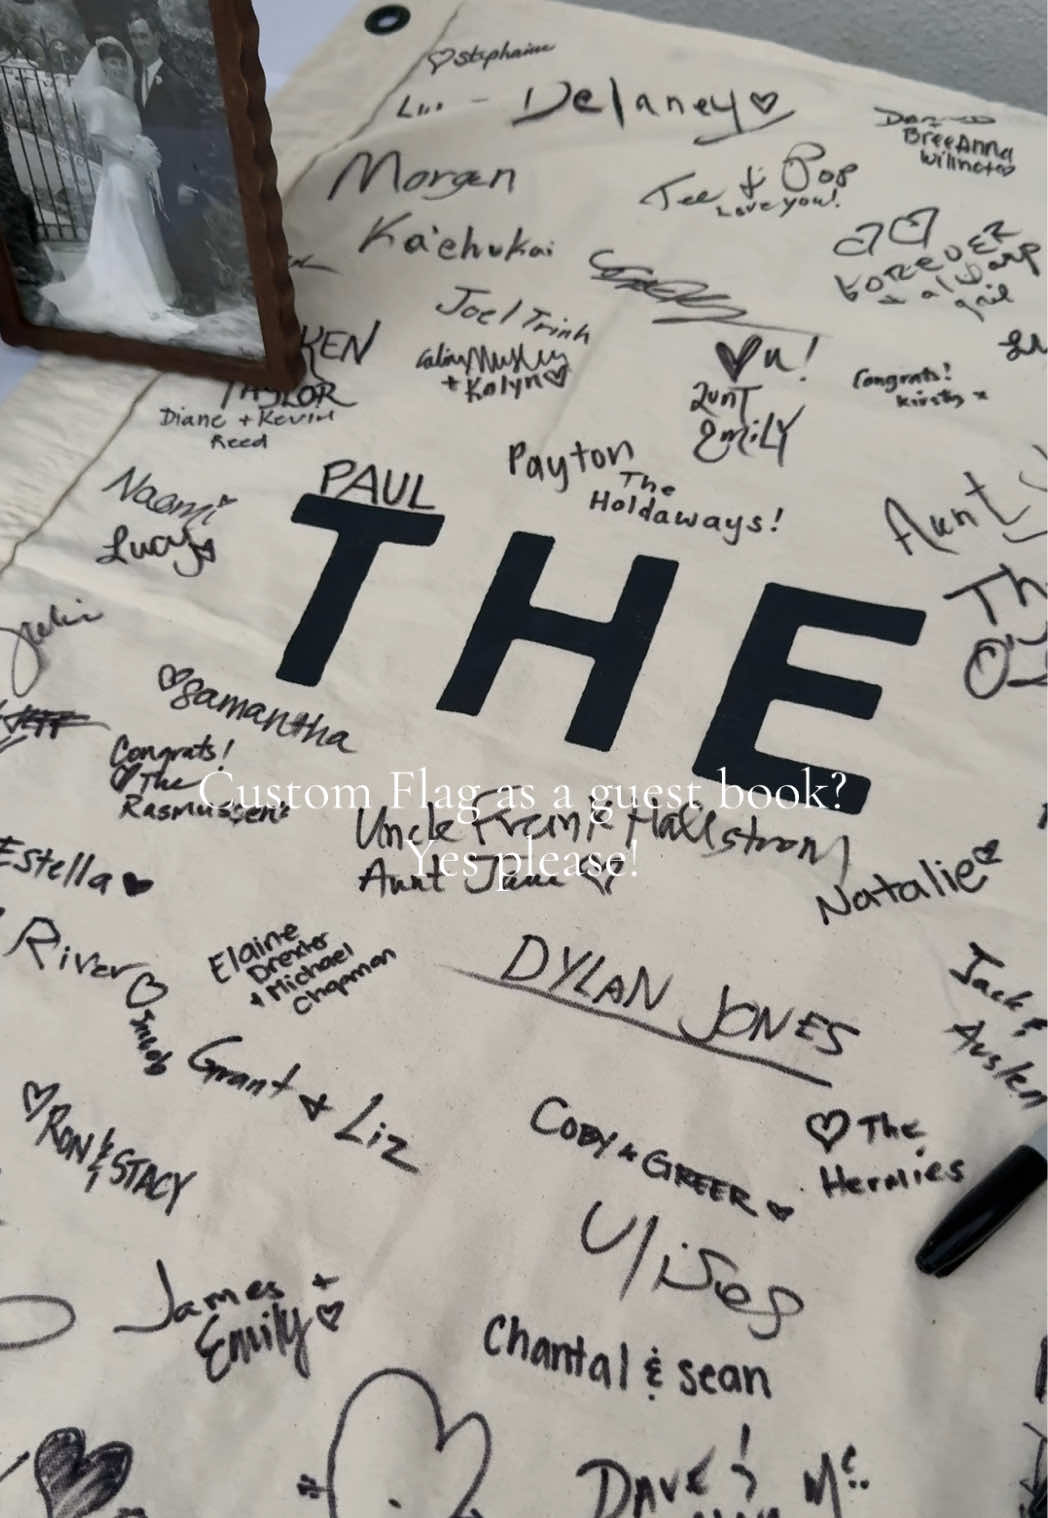 ♡ Stephanie
Delaney ♡
BreeAnna
Morgan
Pop
Love you!
Ka'ehukai
FOREVER
Joel Trinh
KEN
+ Kalyn ♡
♥ u!
Congrats!
Kirsty x
TAYLOR
AUNT
EMiLY
Diane + Kevin
Reed
Payton
The
Holdaways!
PAUL
Naomi
Lucy
Aunt
THE
Th
♡ Samantha
JEFF
Congrats!
♡ The
Rasmussens
Custom Flag as a guest book?
Yes please!
Uncle Frank Hallstrom
Aunt Jane ♡
Estella ♥
Natalie
River
Elaine
Drexler
+ Michael
Chapman
DYLAN JONES
Jack &
Austen
Grant & Liz
♡ RON & STACY
COBY & GREER ♥
♡ The
Hermies
Ulises
James +
Emily ♡
Chantal & Sean
DAVE &